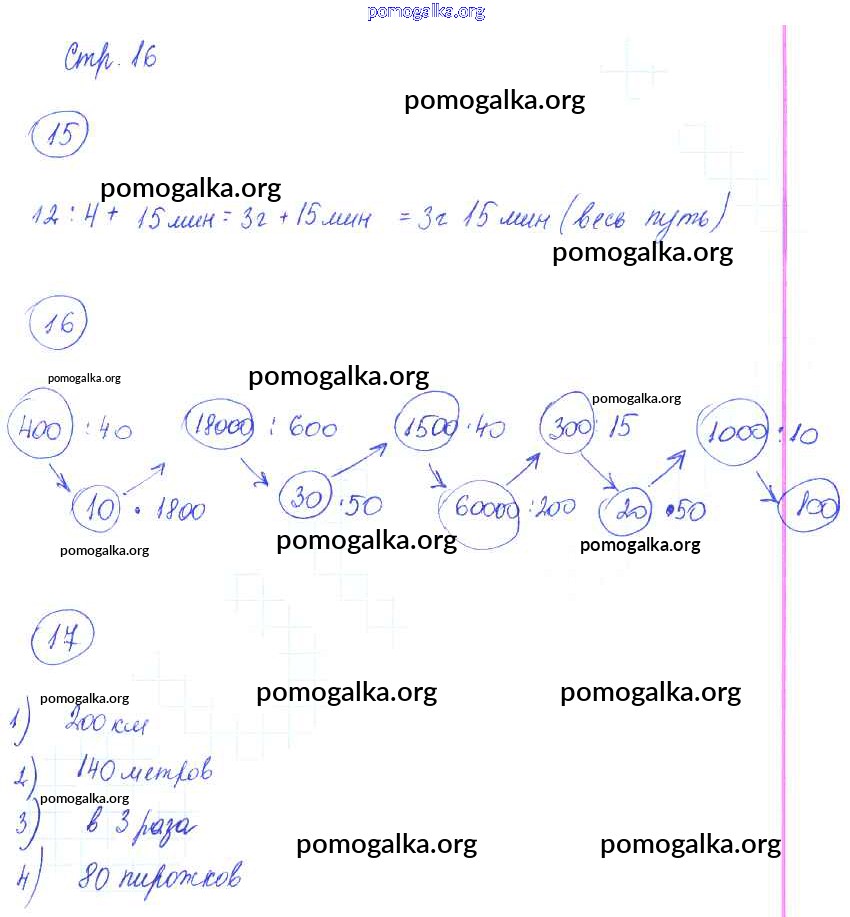 pomogalka.org
Стр. 16
pomogalka.org
15
pomogalka.org
12 : 4 + 15 мин = 3г + 15 мин = 3г 15 мин (весь путь)
pomogalka.org
16
pomogalka.org pomogalka.org
pomogalka.org
400 : 40 18000 : 600 1500 · 40 300 : 15 1000 : 10
10 · 1800 30 · 50 60000 : 200 20 · 50 100
pomogalka.org pomogalka.org pomogalka.org
17
pomogalka.org pomogalka.org pomogalka.org
1) 200 км
2) 140 метров
pomogalka.org
3) в 3 раза
pomogalka.org pomogalka.org
4) 80 пирожков